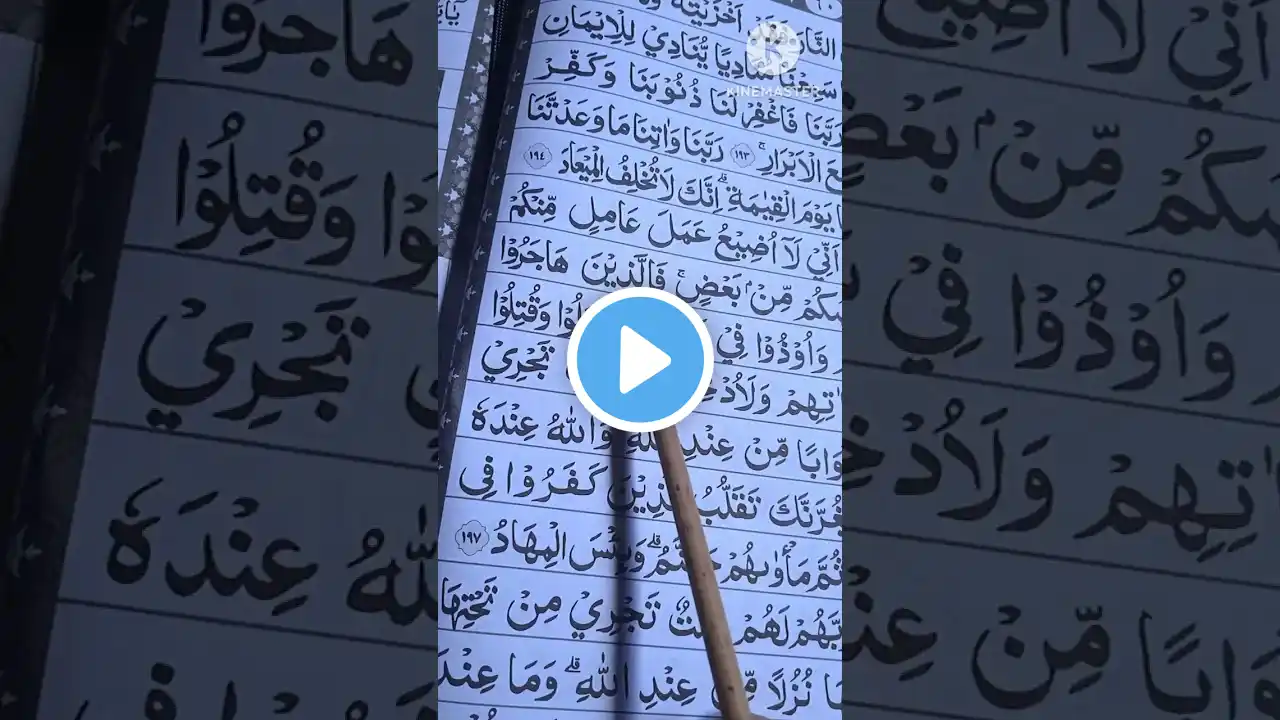 النَّار فَقَدْ اَخْزَيْتَهٗ
سَمِعْنَا مُنَادِيًا يُّنَادِيْ لِلْاِيْمَانِ
رَبَّنَا فَاغْفِرْ لَنَا ذُنُوْبَنَا وَكَفِّرْ
عَ الْاَبْرَارِۚ ١٩٣ رَبَّنَا وَاٰتِنَا مَا وَعَدْتَّنَا
يَوْمَ الْقِيٰمَةِۗ اِنَّكَ لَا تُخْلِفُ الْمِيْعَادَ ١٩٤
اَنِّيْ لَآ اُضِيْعُ عَمَلَ عَامِلٍ مِّنْكُمْ
ضُكُمْ مِّنْۢ بَعْضٍۚ فَالَّذِيْنَ هَاجَرُوْا
وَاُوْذُوْا فِيْ لُوْا وَقُتِلُوْا
اٰتِهِمْ وَلَاُدْخِ تَجْرِيْ
وَابًا مِّنْ عِنْدِ اللّٰهِ وَاللّٰهُ عِنْدَهٗ
غُرَّنَّكَ تَقَلُّبُ الَّذِيْنَ كَفَرُوْا فِى
ثُمَّ مَأْوٰىهُمْ جَهَنَّمُۗ وَبِئْسَ الْمِهَادُ ١٩٧
بَّهُمْ لَهُمْ جَنّٰتٌ تَجْرِيْ مِنْ تَحْتِهَا
نُزُلًا مِّنْ عِنْدِ اللّٰهِۗ وَمَا عِنْدَ
KINEMASTER